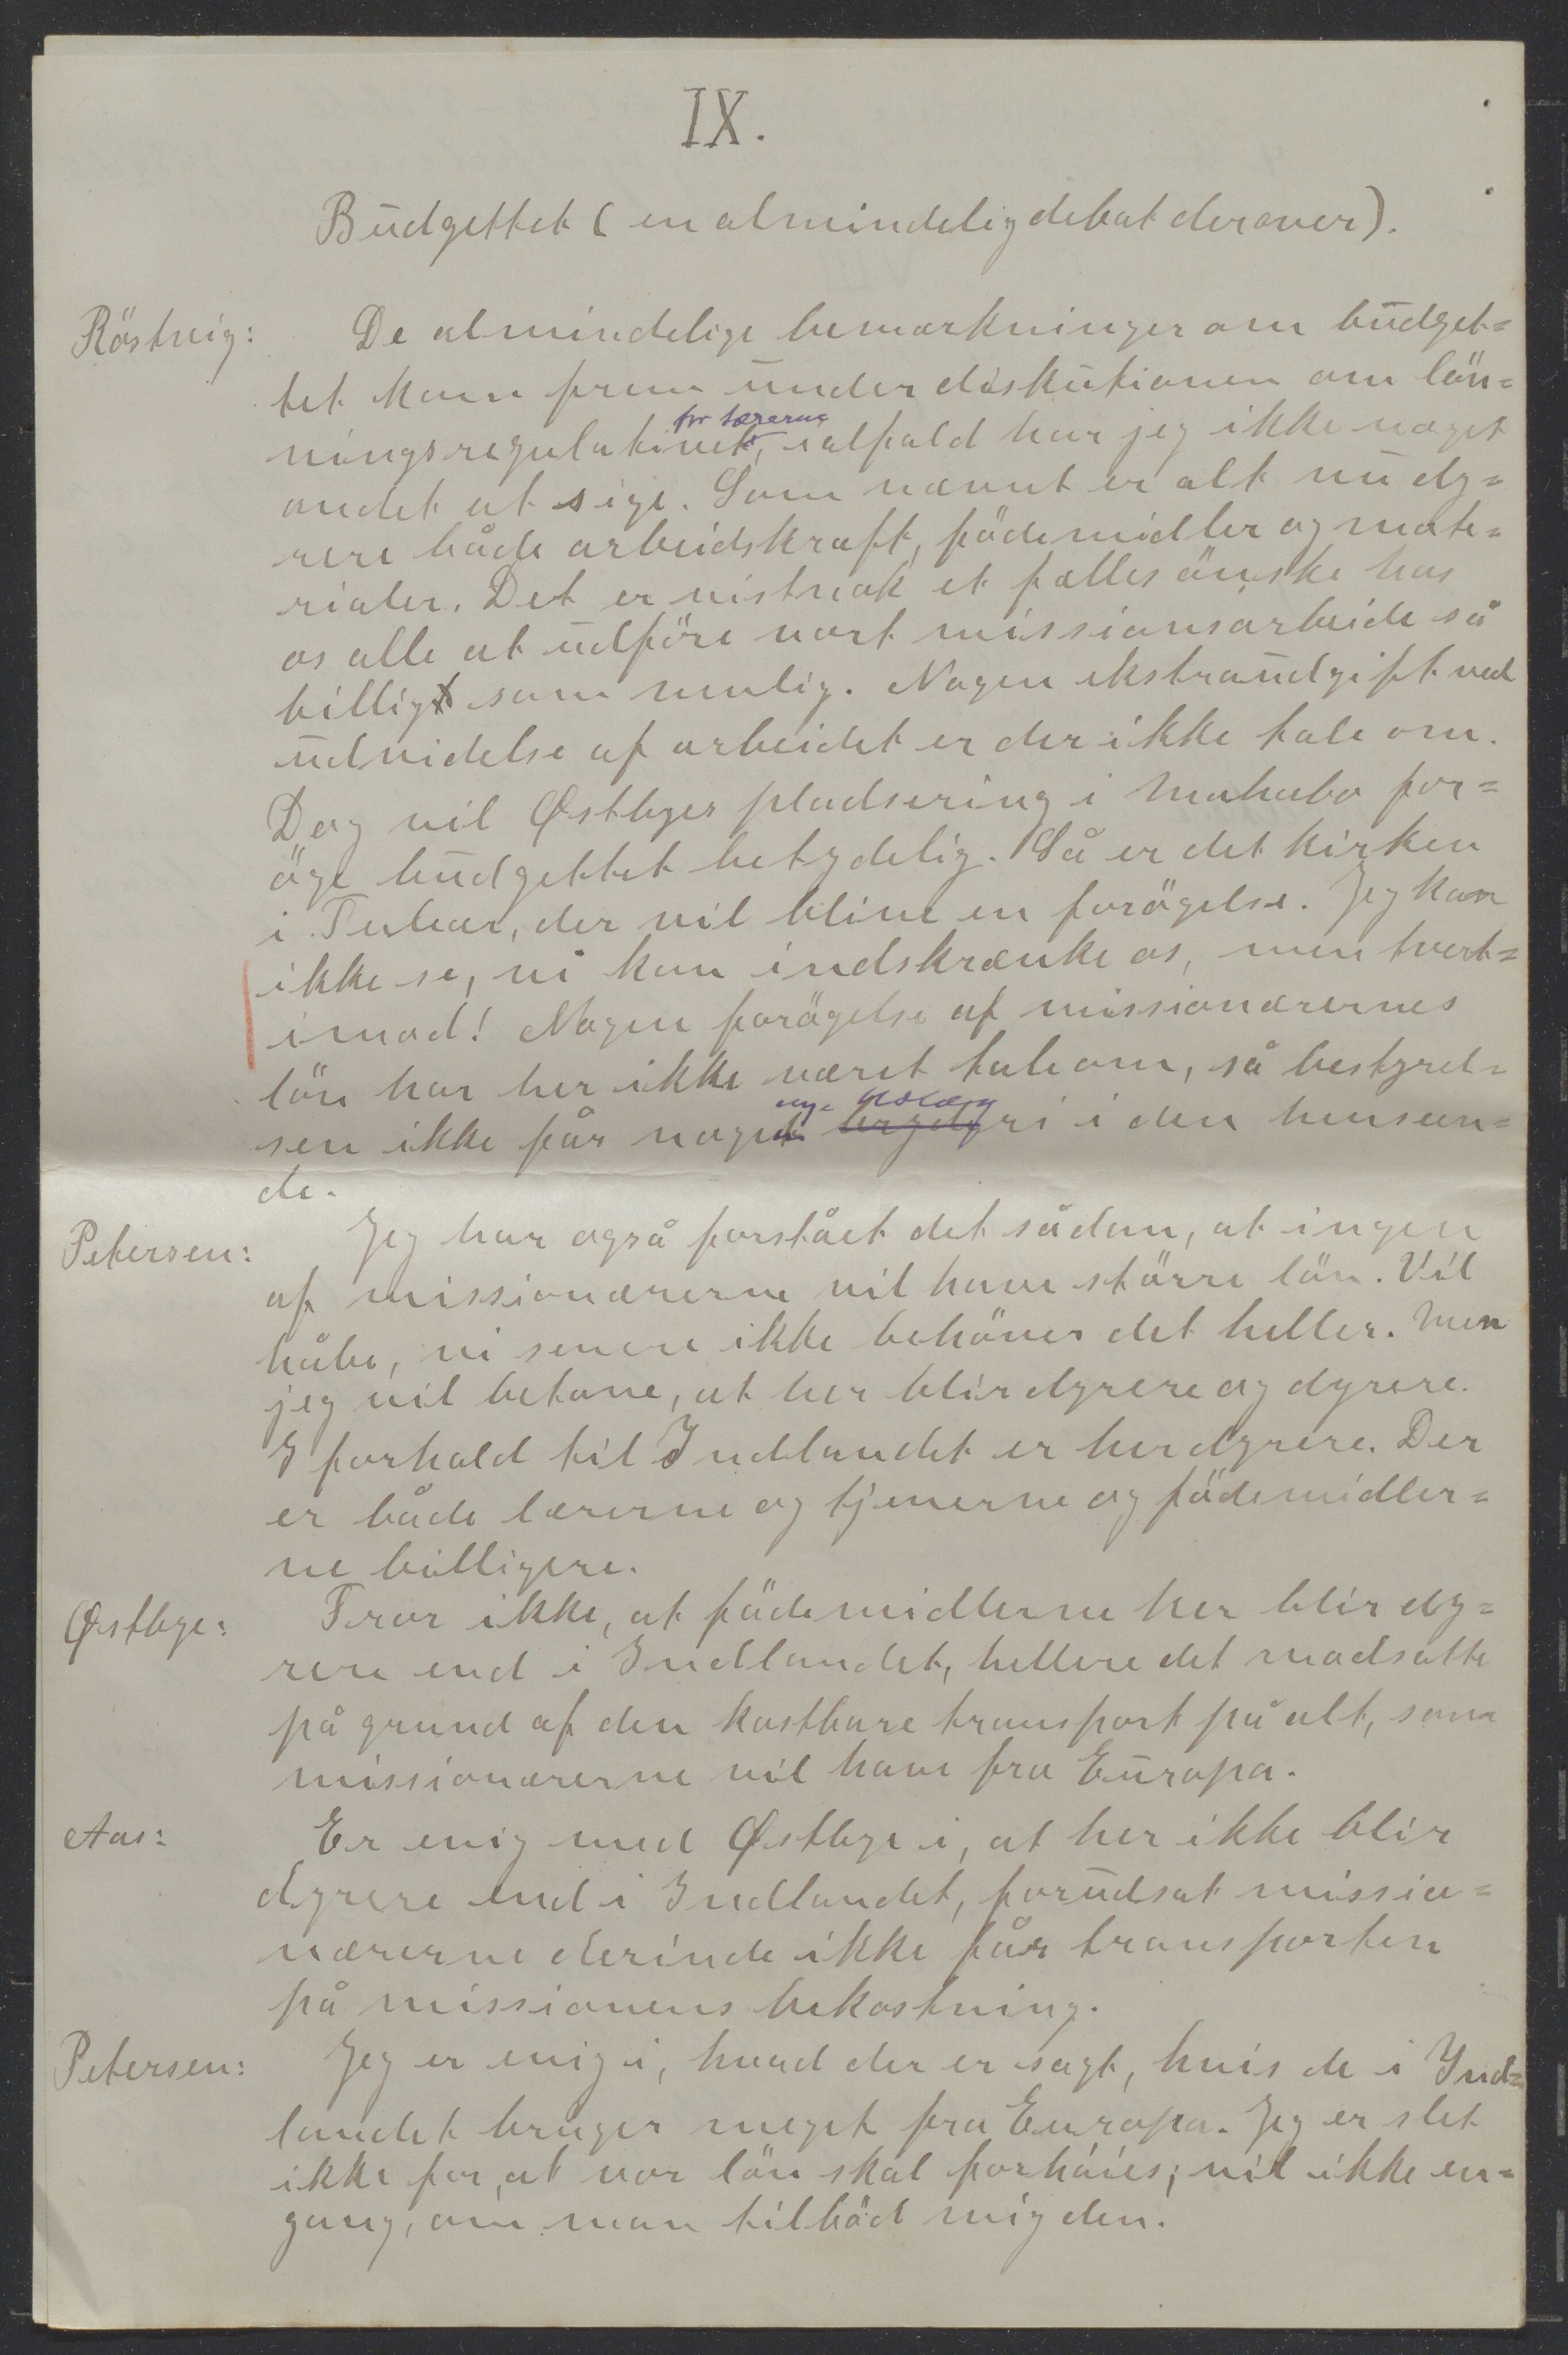 IX.
Budgettet (en almindelig debat derover).
Röstvig: De almindelige bemærkninger om budget=
tet kom frem under diskutionen om lön=
for lærerne
ningsregulativet, ialfald har jeg ikke noget
andet at sige. Som nævnt er alt nu dy=
rere både arbeidskraft, födemidler og mate=
rialer. Det er vistnok et fælles önske hos
os alle at udföre vort missionsarbeide så
billigt som mulig. Nogen ekstraudgift ved
udvidelse af arbeidet er der ikke tale om.
Dog vil Østbyes pladsering i Mahabo for=
öge budgettet betydelig. Så er det kirken
i Tulear, der vil blive en forögelse. Jeg kan
ikke se, vi kan indskrænke os, men tvert=
imod! Nogen forögelse af missionærernes
lön har her ikke været tale om, så bestyrel=
sen ikke får noget bryderi i den henseen=
de.
Petersen: Jeg har også forstået det sådan, at ingen
af missionærerne vil have större lön. Vil
håbe, vi senere ikke behöver det heller. Men
jeg vil betone, at her blir dyrere og dyrere.
I forhold til Indlandet er her dyrere. Der
er både lærerne og tjenerne og födemidler=
ne billigere.
Østbye: Tror ikke, at födemidlerne her blir dy=
rere end i Indlandet, hellere det modsatte
på grund af den kostbare transport på alt, som
missionærerne vil have fra Europa.
Aas: Er enig med Østbye i, at her ikke blir
dyrere end i Indlandet, forudsat missio=
nærerne derinde ikke får transporten
på missionens bekostning.
Petersen: Jeg er enig i, hvad der er sagt, hvis de i Ind=
landet bruger meget fra Europa. Jeg er slet
ikke for, at vor lön skal forhöies; vil ikke en=
gang, om man tilböd mig den.